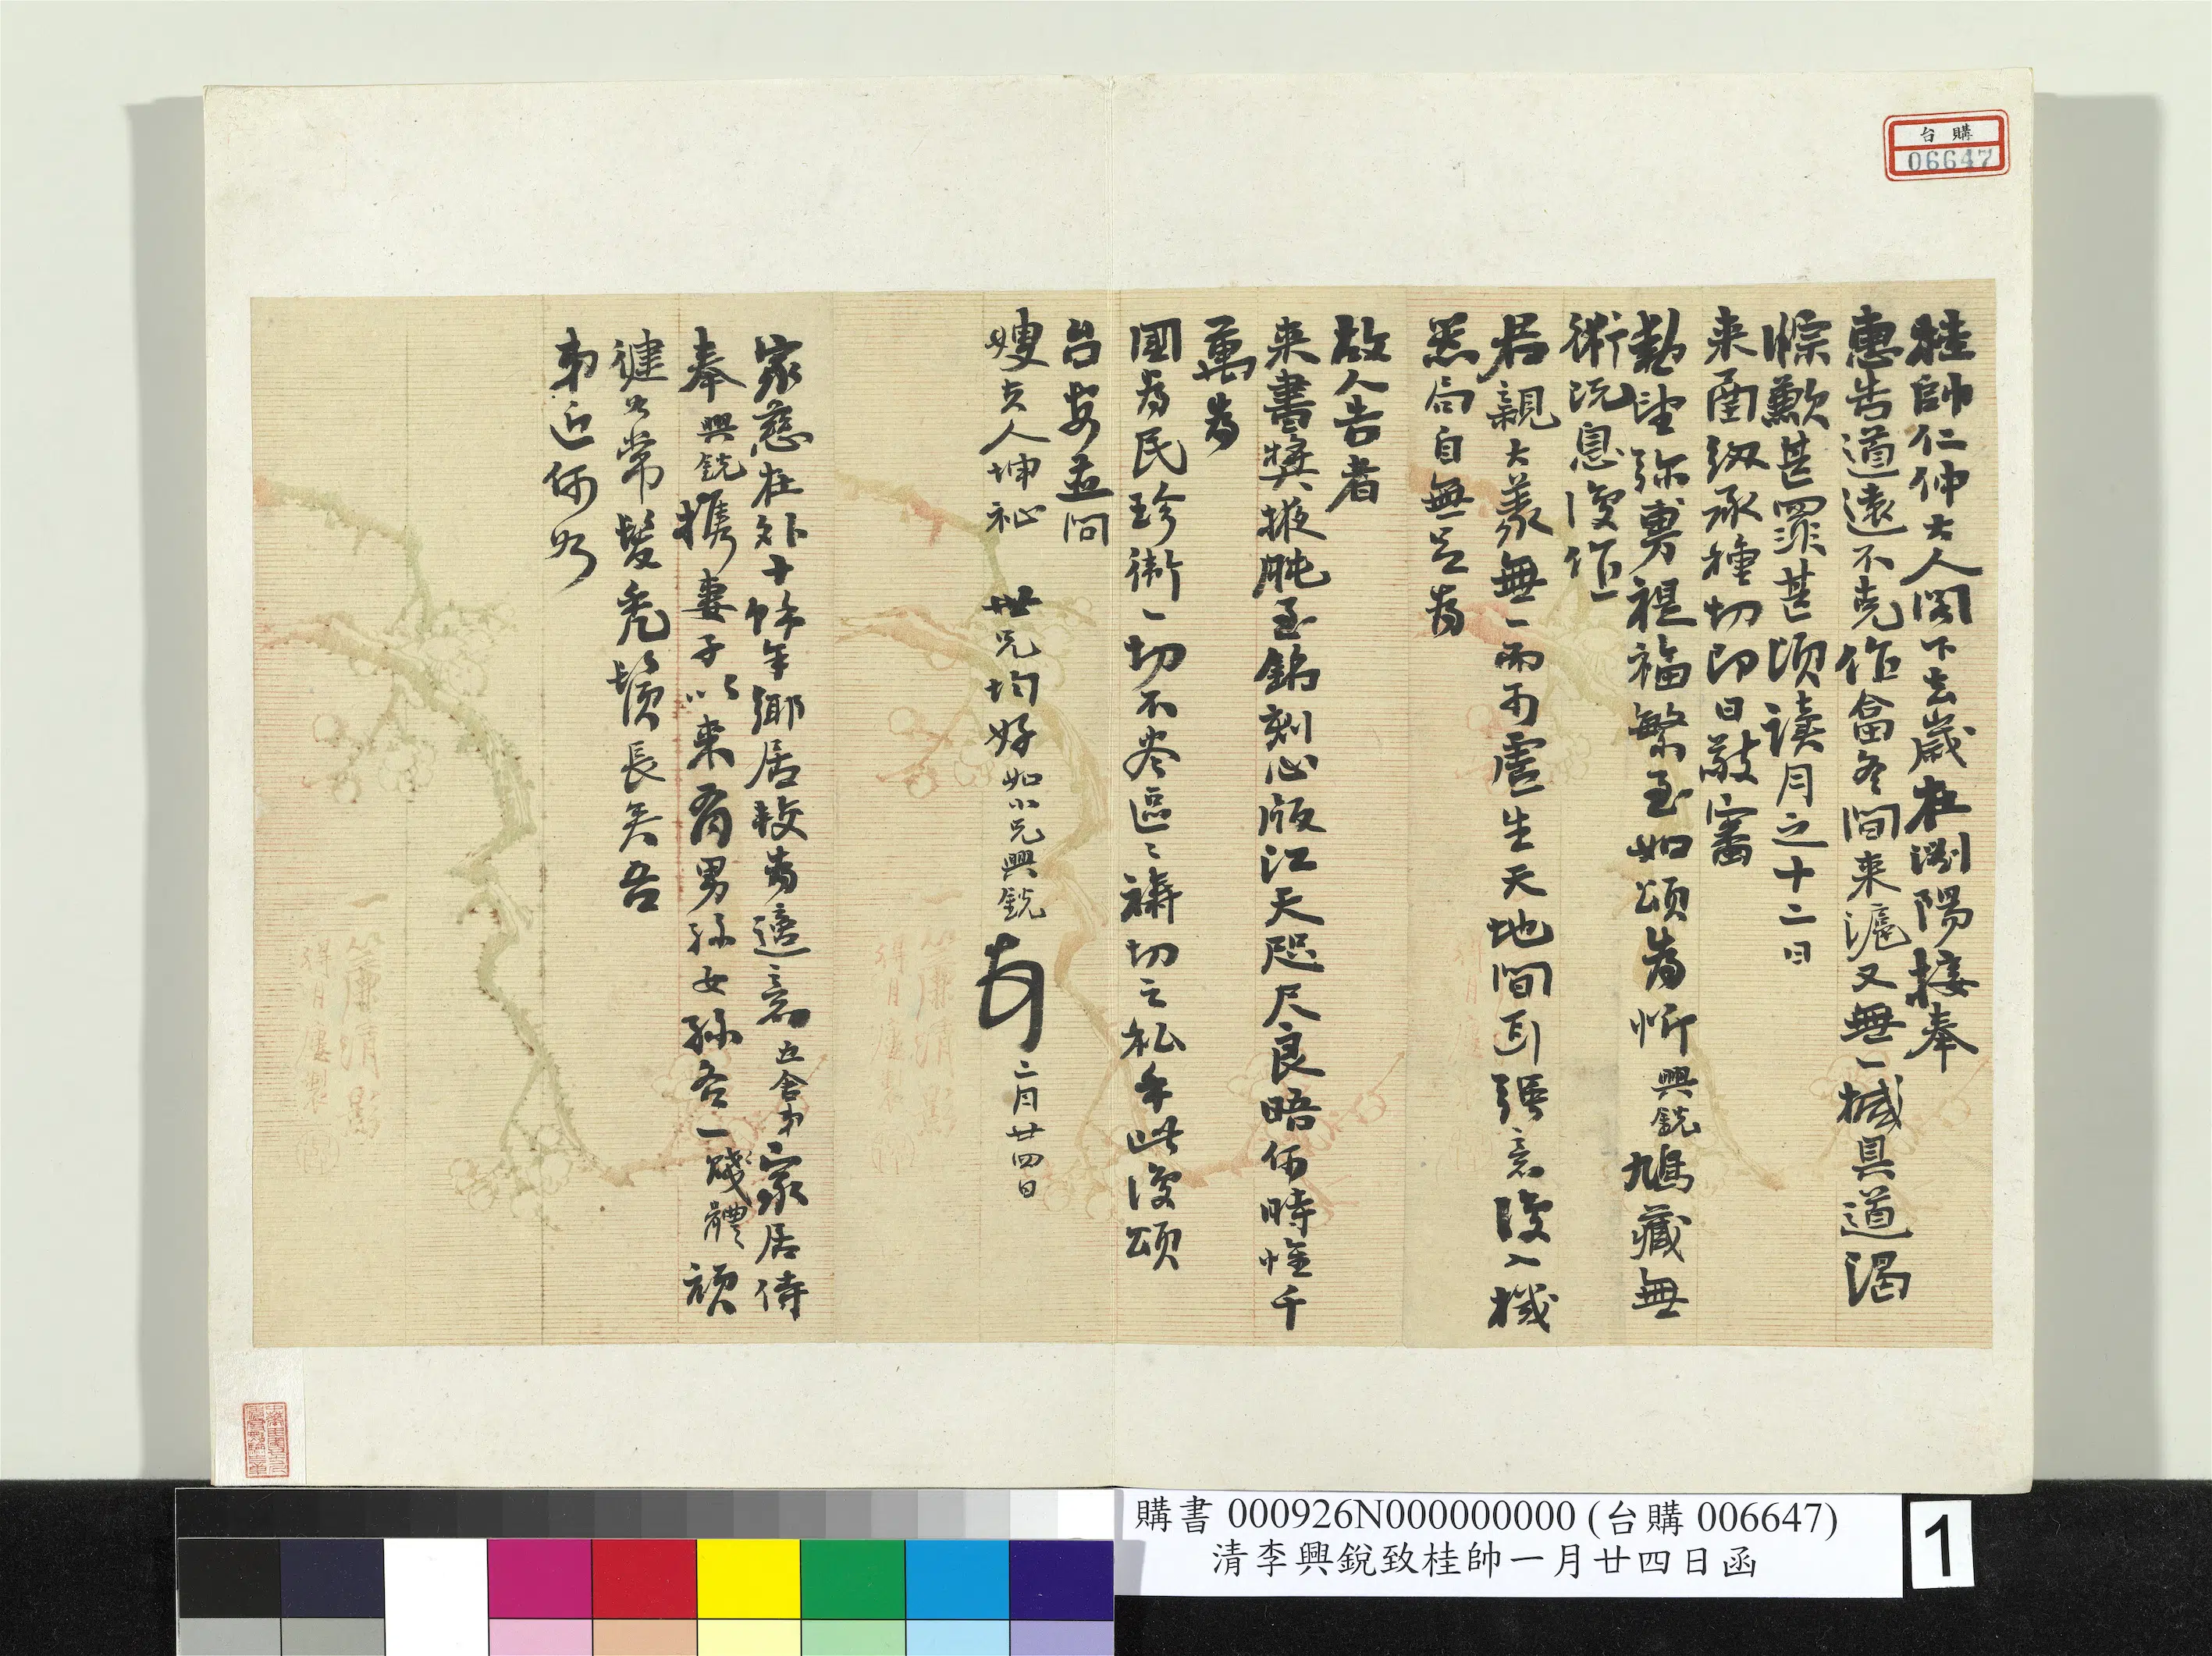 台購
06647
桂帥仁仲大人閣下去歲在瀏陽接奉
惠告道遠不克作畣冬間來滬又無一椷具道渴
悰歉甚罪甚頃讀月之十二日
來函紉承種切即日敬審
勳望彌勇禔福繁至如頌為忻興銳鳩藏無
術沉息復作
君親大義無一而可虛生天地間耳張意復入機
器局自無足為
故人告者
來書獎掖肫至銘刻心版江天咫尺良晤何時惟千
萬為
國為民珍衛一切不盡區區禱切之私手此復頌
台安並問
嫂夫人坤祉 世兄均好如小兄興銳
二月廿四日
家慈在外十餘年鄉居較為適意五舍弟家居侍
奉興銳攜妻子以來有男孫女孫各一賤體頑
健如常髮禿鬚長矣吾
弟近何如
一簾清影
得月廔製
購書 000926N000000000 (台購 006647)
清李興銳致桂帥一月廿四日函
1